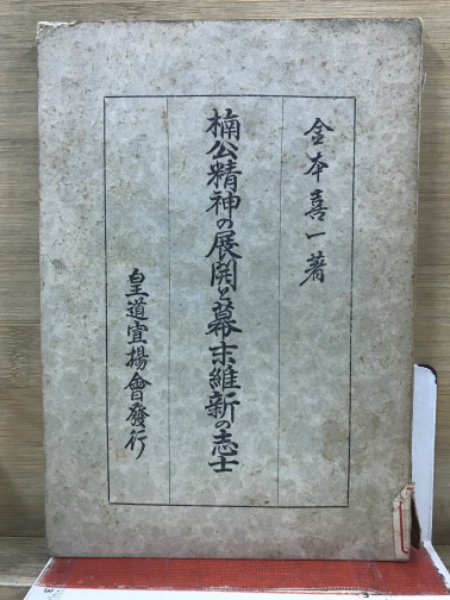 金本喜一著
楠公精神の展開と幕末維新の志士
皇道宣揚會發行